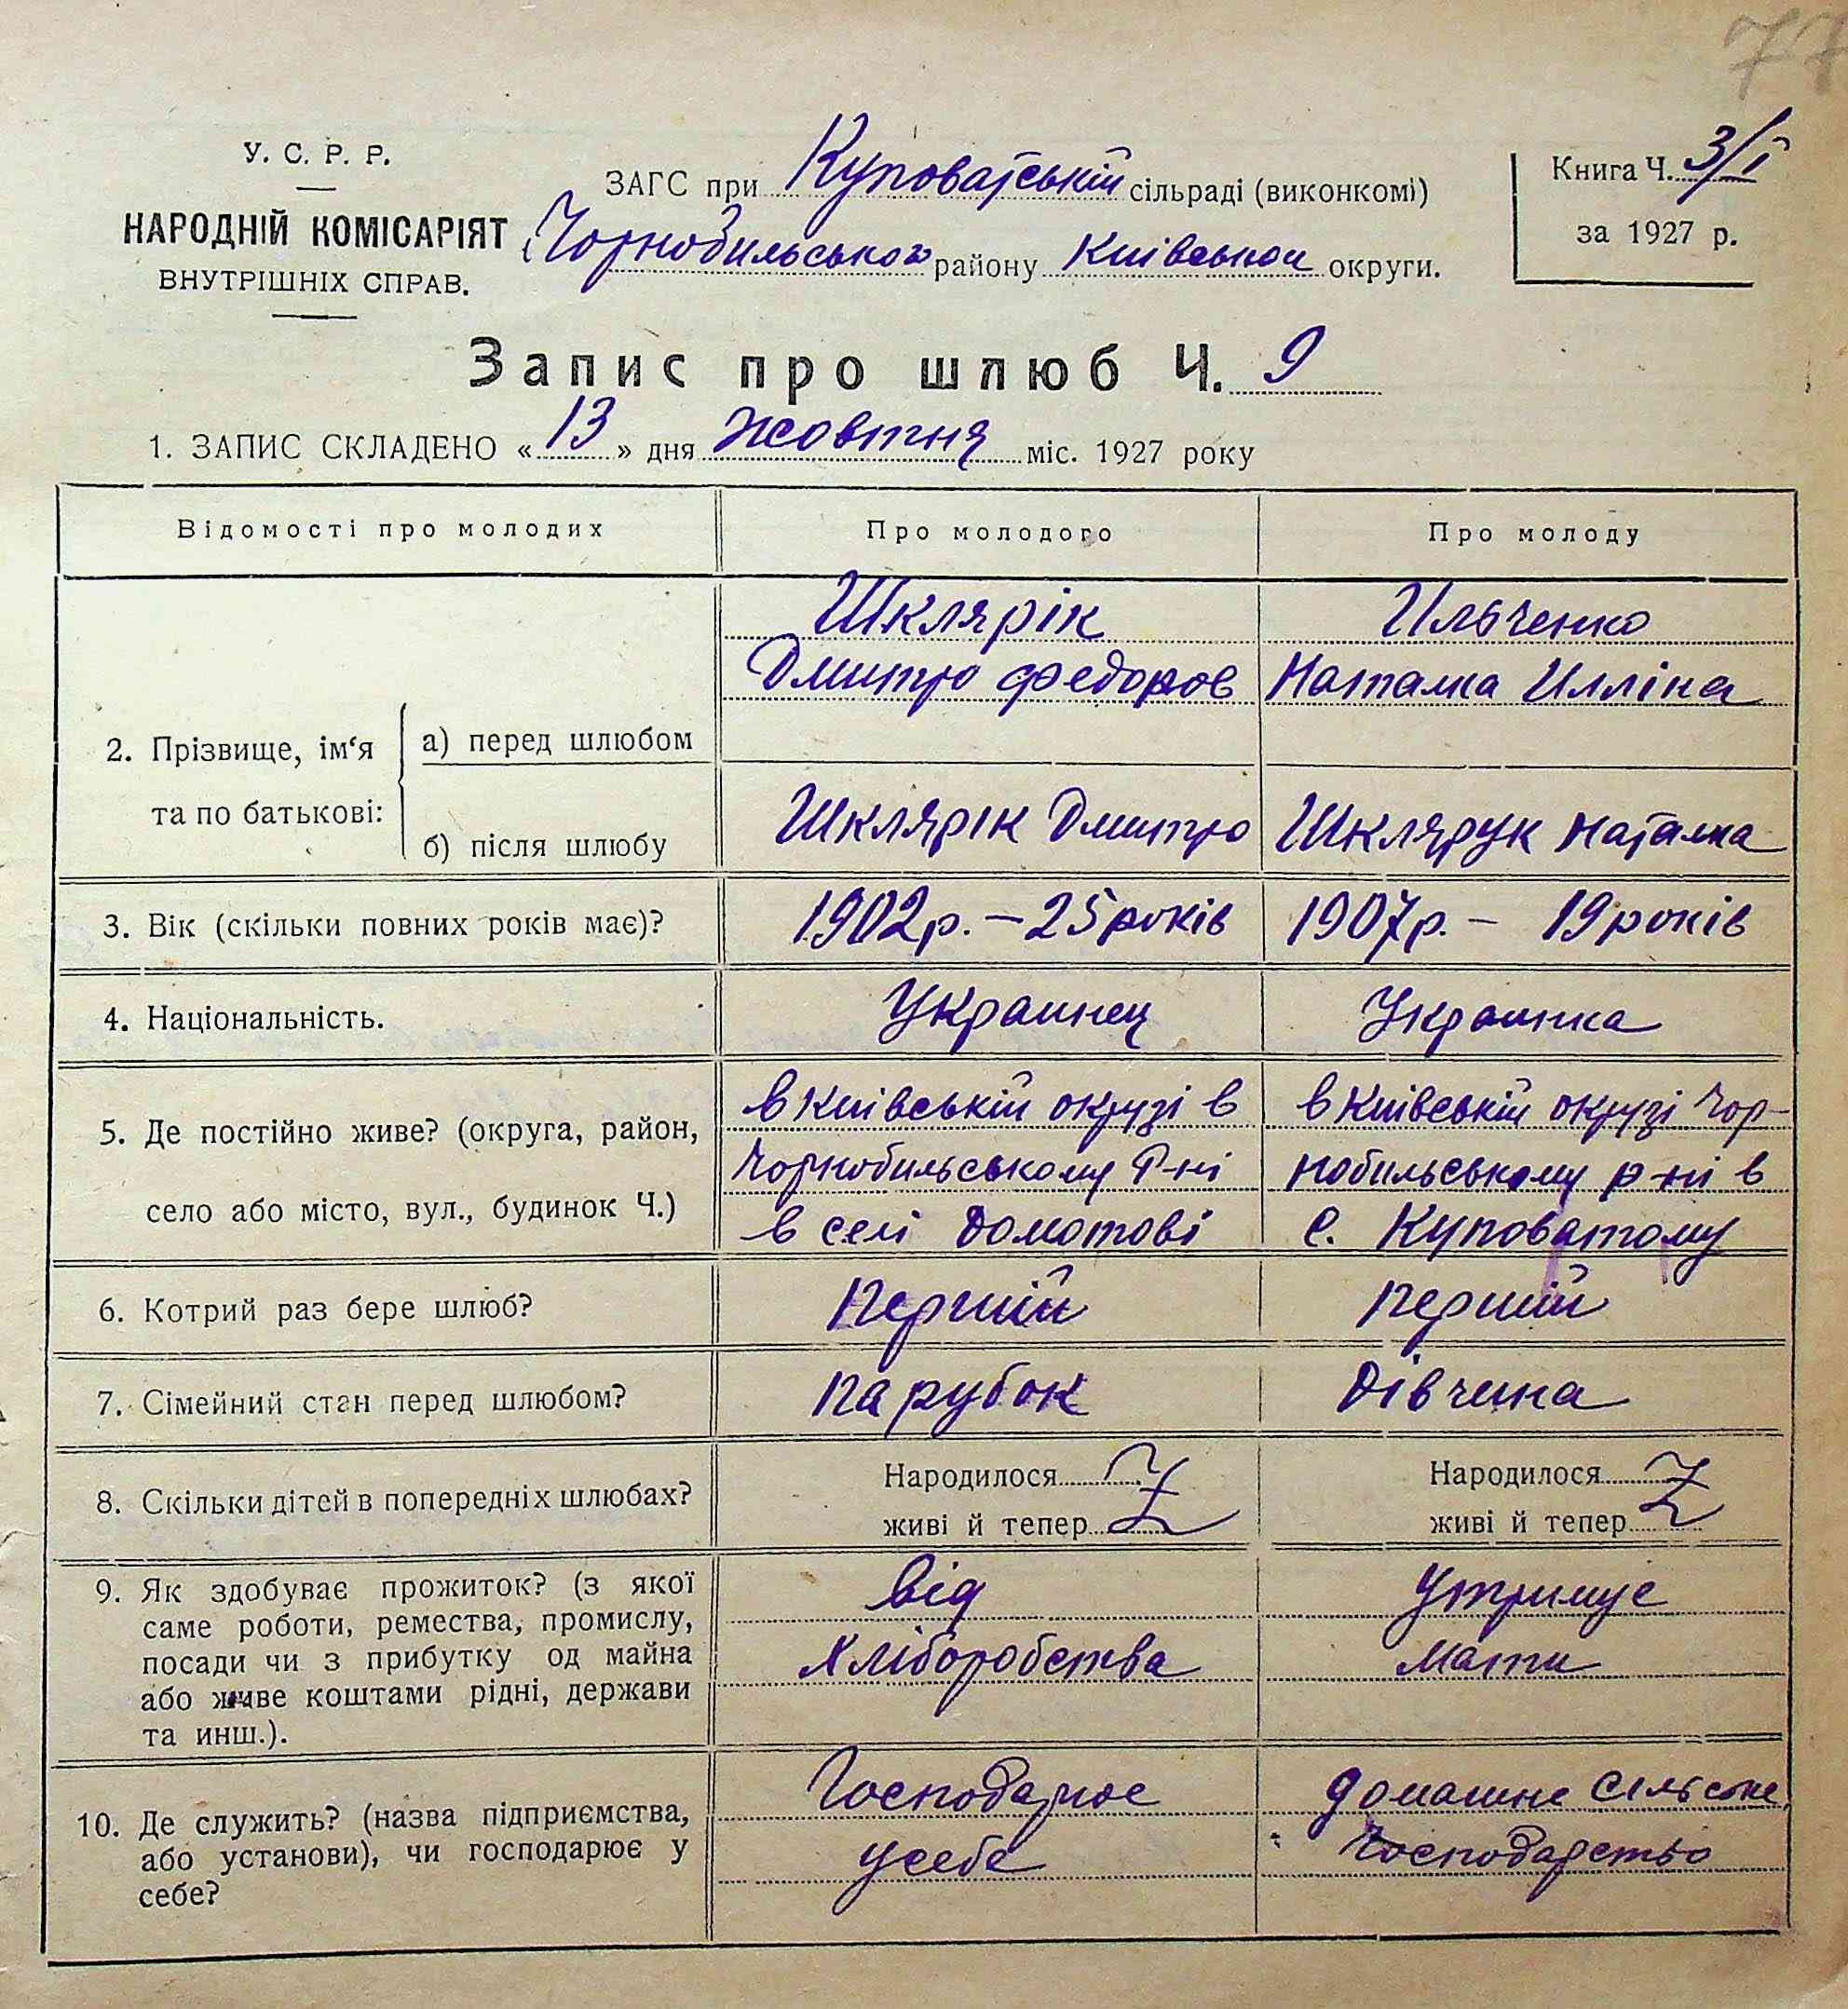 77
У. С. Р. Р.
НАРОДНІЙ КОМІСАРІЯТ
ВНУТРІШНІХ СПРАВ.
ЗАГС при Куповатській сільраді (виконкомі)
Чорнобильського району Київської округи.
Книга Ч. 3/І
за 1927 р.
Запис про шлюб Ч. 9
1. ЗАПИС СКЛАДЕНО «13» дня жовтня міс. 1927 року
Відомості про молодих
Про молодого
Про молоду
2. Прізвище, ім‘я
та по батькові:
а) перед шлюбом
Шклярік
Дмитро Федоров
Ильченко
Наталка Илліна
б) після шлюбу
Шклярік Дмитро
Шклярук Наталка
3. Вік (скільки повних років має)?
1902р. – 25 років
1907р. – 19 років
4. Національність.
Украинец
Украинка
5. Де постійно живе? (округа, район,
село або місто, вул., будинок Ч.)
в Київській окрузі в
Чорнобильському Р-ні
в селі Домотові
в Київській окрузі Чор-
нобильському р-ні в
с. Куповатому
6. Котрий раз бере шлюб?
Перший
перший
7. Сімейний стан перед шлюбом?
парубок
Дівчина
8. Скільки дітей в попередніх шлюбах?
Народилося
живі й тепер
Народилося
живі й тепер
9. Як здобуває прожиток? (з якої
саме роботи, ремества, промислу,
посади чи з прибутку од майна
або живе коштами рідні, держави
та инш.).
від
Хліборобства
утримує
Мати
10. Де служить? (назва підприємства,
або установи), чи господарює у
себе?
Господарює
усебе
домашнє сільське
господарство